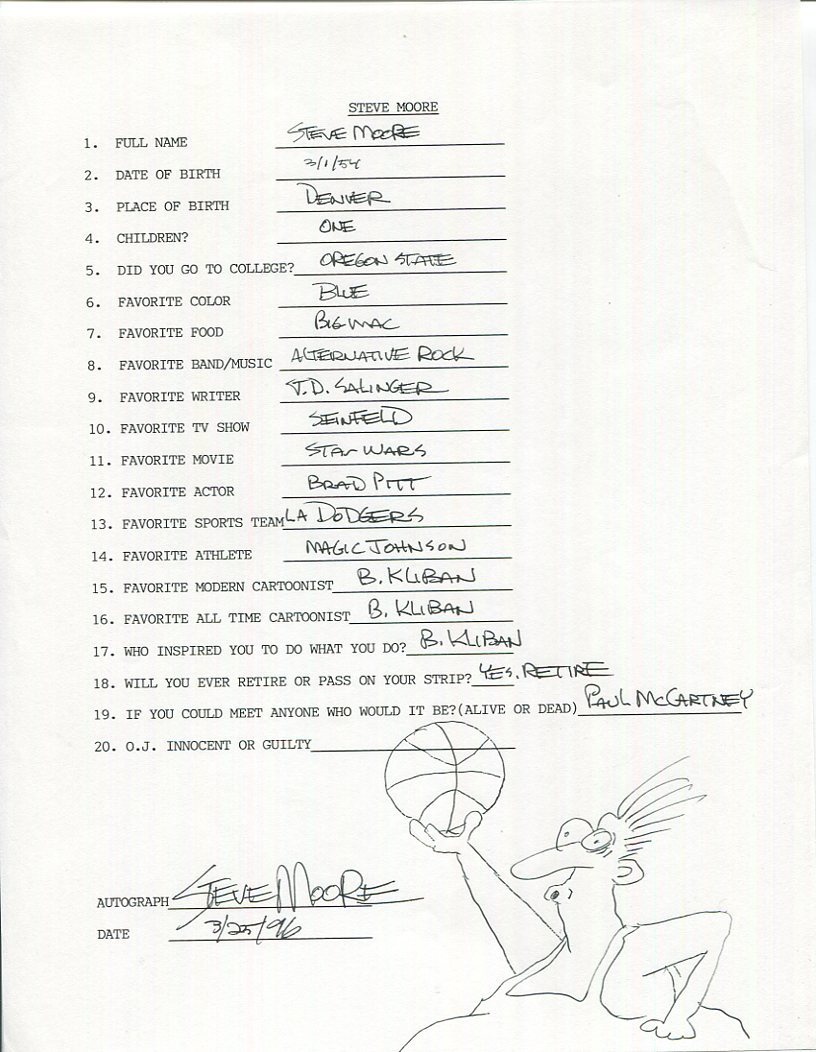 STEVE MOORE
1. FULL NAME STEVE MOORE
2. DATE OF BIRTH 3/1/54
3. PLACE OF BIRTH DENVER
4. CHILDREN? ONE
5. DID YOU GO TO COLLEGE? OREGON STATE
6. FAVORITE COLOR BLUE
7. FAVORITE FOOD BIG MAC
8. FAVORITE BAND/MUSIC ALTERNATIVE ROCK
9. FAVORITE WRITER J.D. SALINGER
10. FAVORITE TV SHOW SEINFELD
11. FAVORITE MOVIE STAR WARS
12. FAVORITE ACTOR BRAD PITT
13. FAVORITE SPORTS TEAM LA DODGERS
14. FAVORITE ATHLETE MAGIC JOHNSON
15. FAVORITE MODERN CARTOONIST B. KLIBAN
16. FAVORITE ALL TIME CARTOONIST B. KLIBAN
17. WHO INSPIRED YOU TO DO WHAT YOU DO? B. KLIBAN
18. WILL YOU EVER RETIRE OR PASS ON YOUR STRIP? YES. RETIRE
19. IF YOU COULD MEET ANYONE WHO WOULD IT BE?(ALIVE OR DEAD) PAUL McCARTNEY
20. O.J. INNOCENT OR GUILTY
AUTOGRAPH STEVE MOORE
DATE 3/25/96